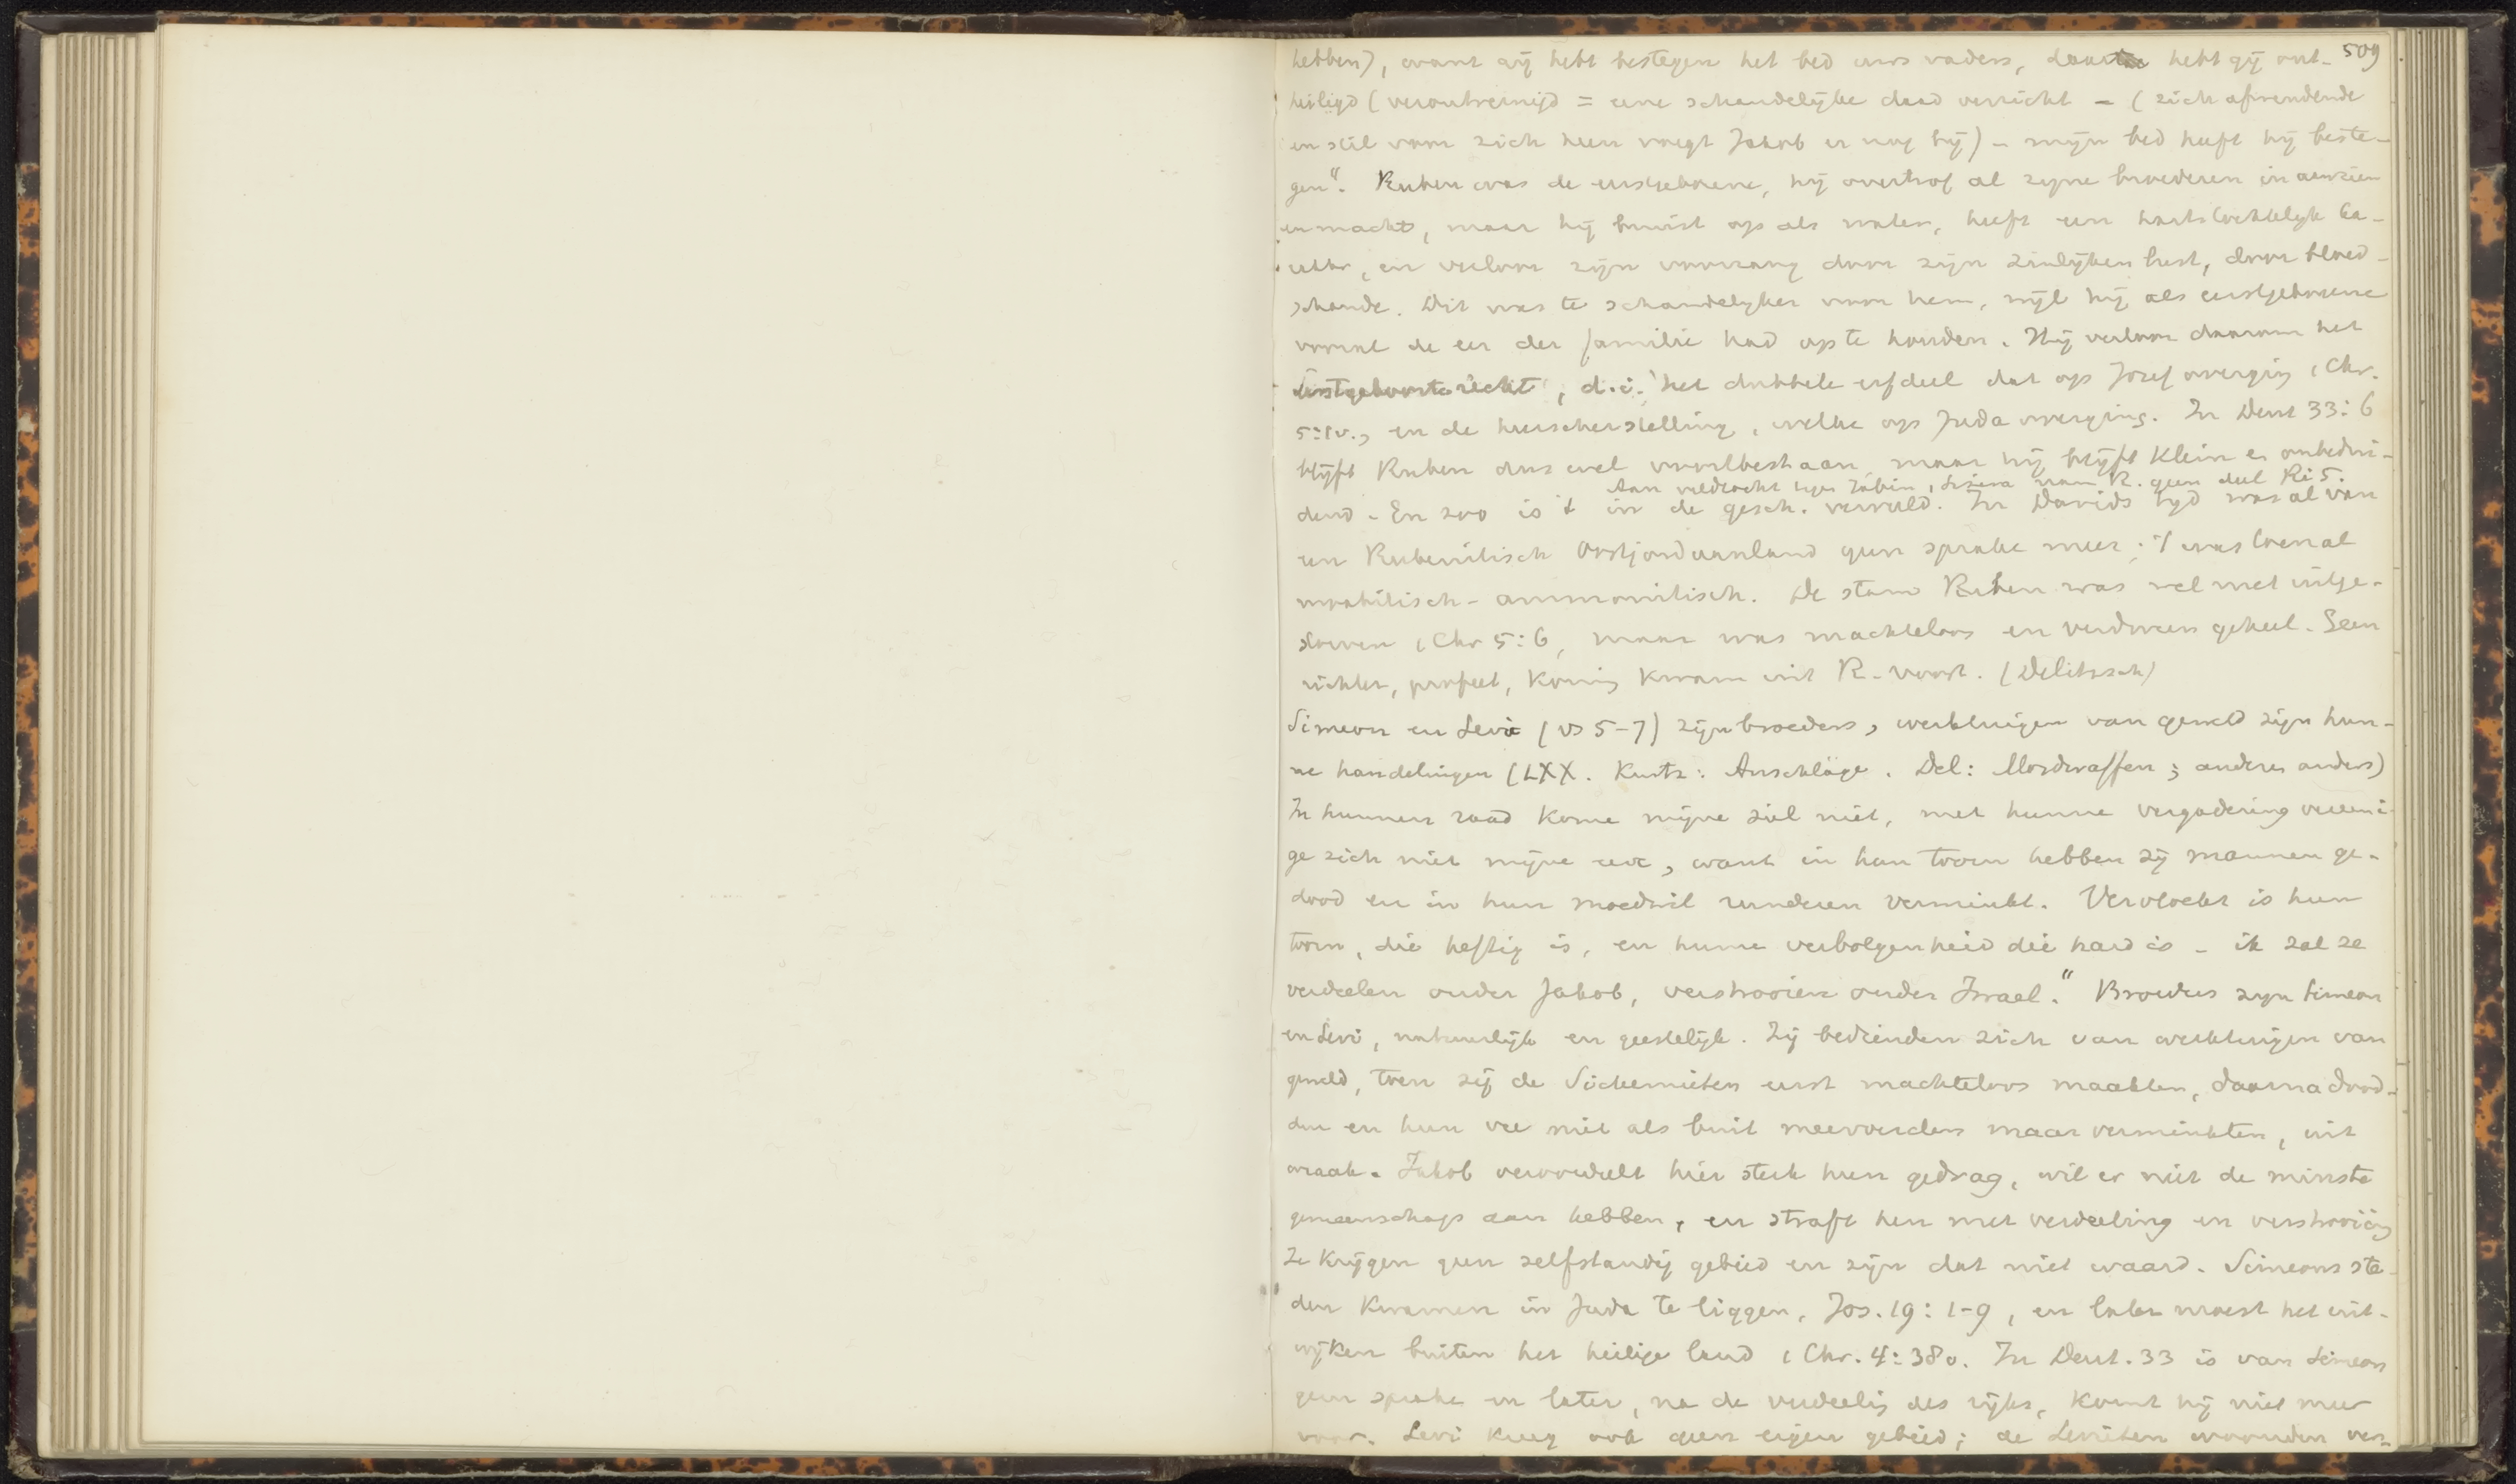 509
hebben), want gij hebt bestegen het bed uws vaders, daar hebt gij ont-
heiligd (verontreinigd = eene schandelijke daad verricht - (zich afwendende
en stil voor zich heen voegt Jakob er nog bij) - mijn bed heeft hij beste-
gen". Ruben was de eerstgeborene, hij overtrof al zijne broederen in aanzien
en macht, maar hij bruist op als water, heeft een hartstochtelijk ka-
rakter, en verloor zijn voorrang door zijn zinlijken lust, door bloed-
schande. Dit was te schandelijker voor hem, wijl hij als eerstgeborene
vooral de eer der familie had op te houden. Hij verloor daarom het
eerstgeboorterecht, d.i. het dubbele erfdeel dat op Jozef overging 1 Chr.
5:1v., en de heerscherstelling, welke op Juda overging. In Deut 33:6
blijft Ruben dus wel voortbestaan, maar hij blijft klein en onbedui-
Aan veldtocht tegen Jabin, Sisera nam R. geen deel Ri 5.
dend - En zoo is 't in de gesch. vervuld. In Davids tijd was al van
een Rubenitisch Oostjordaanland geen sprake meer; 't was toen al
moabitisch-ammonitisch. De stam Ruben was wel niet uitge-
storven 1 Chr 5:6, maar was machteloos en verdween geheel. Geen
richter, profeet, koning kwam uit R. voort. (Delitzsch)
Simeon en Levi (vs 5-7) zijn broeders, werktuigen van geweld zijn hun-
ne handelingen (LXX. Kurtz: Anschläge. Del: Mordwaffen; anderen anders)
In hunnen raad kome mijne ziel niet, met hunne vergadering vereeni-
ge zich niet mijne eere, want in hun toorn hebben zij mannen ge-
dood en in hun moedwil runderen verminkt. Vervloekt is hun
toorn, die heftig is, en hunne verbolgenheid die hard is - ik zal ze
verdeelen onder Jakob, verstrooien onder Israel." Broeders zijn Simeon
en Levi, natuurlijk en geestelijk. Zij bedienden zich van werktuigen van
geweld, toen zij de Sichemieten eerst machteloos maakten, daarna dood-
den en hun vee niet als buit meevoerden maar verminkten, uit
wraak. Jakob veroordeelt hier sterk hun gedrag, wil er niet de minste
gemeenschap aan hebben, en straft hen met verdeeling en verstrooiing
Ze krijgen geen zelfstandig gebied en zijn dat niet waard. Simeons ste-
den kwamen in Juda te liggen, Jos. 19:1-9, en later moest het uit-
wijken buiten het heilige land 1 Chr. 4:38v. In Deut. 33 is van Simeon
geen sprake en later, na de verdeeling des rijks, komt hij niet meer
voor. Levi kreeg ook geen eigen gebied; de Levieten woonden ver-